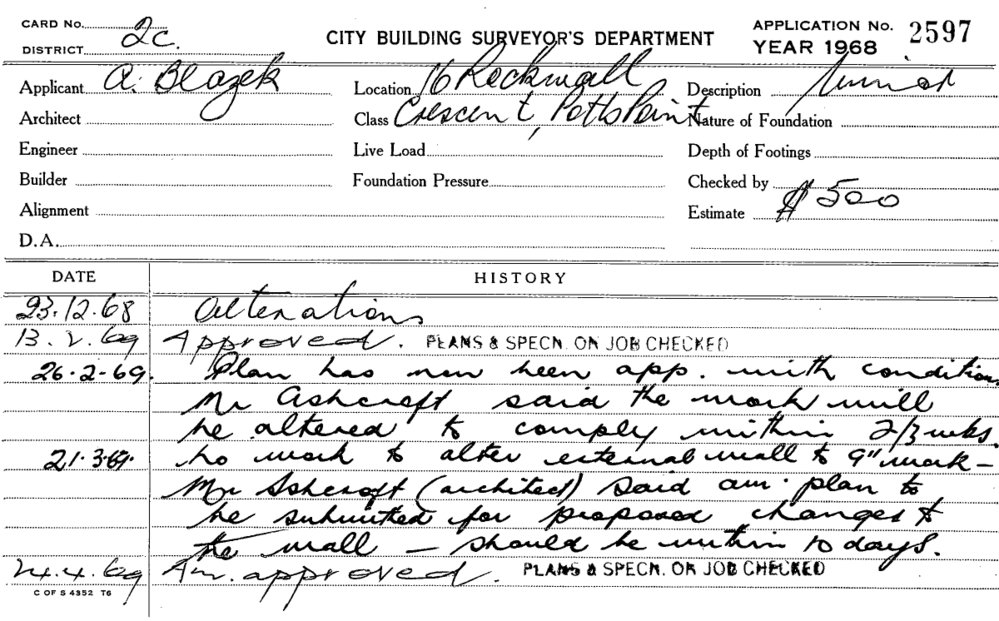 CARD No. 2c.
DISTRICT
CITY BUILDING SURVEYOR'S DEPARTMENT
APPLICATION No. 2597
YEAR 1968
Applicant A. Blazek
Location 16 Rockwall
Description
Architect
Class Crescent, Potts Point
Nature of Foundation
Engineer
Live Load
Depth of Footings
Builder
Foundation Pressure
Checked by
Alignment
Estimate $500
D.A.
DATE HISTORY
23.12.68 Alterations
13.2.69 Approved. PLANS & SPECN. ON JOB CHECKED
26.2-69. Plan has now been app. with condition
Mr Ashcroft said the work will
be altered to comply within 2/3 wks.
21.3.69. No work to alter external wall to 9" work -
Mr Ashcroft (architect) said am. plan to
be submitted for proposed changes to
the wall - should be within 10 days.
24.4.69 Am. approved. PLANS & SPECN. ON JOB CHECKED
C OF S 4352 T6